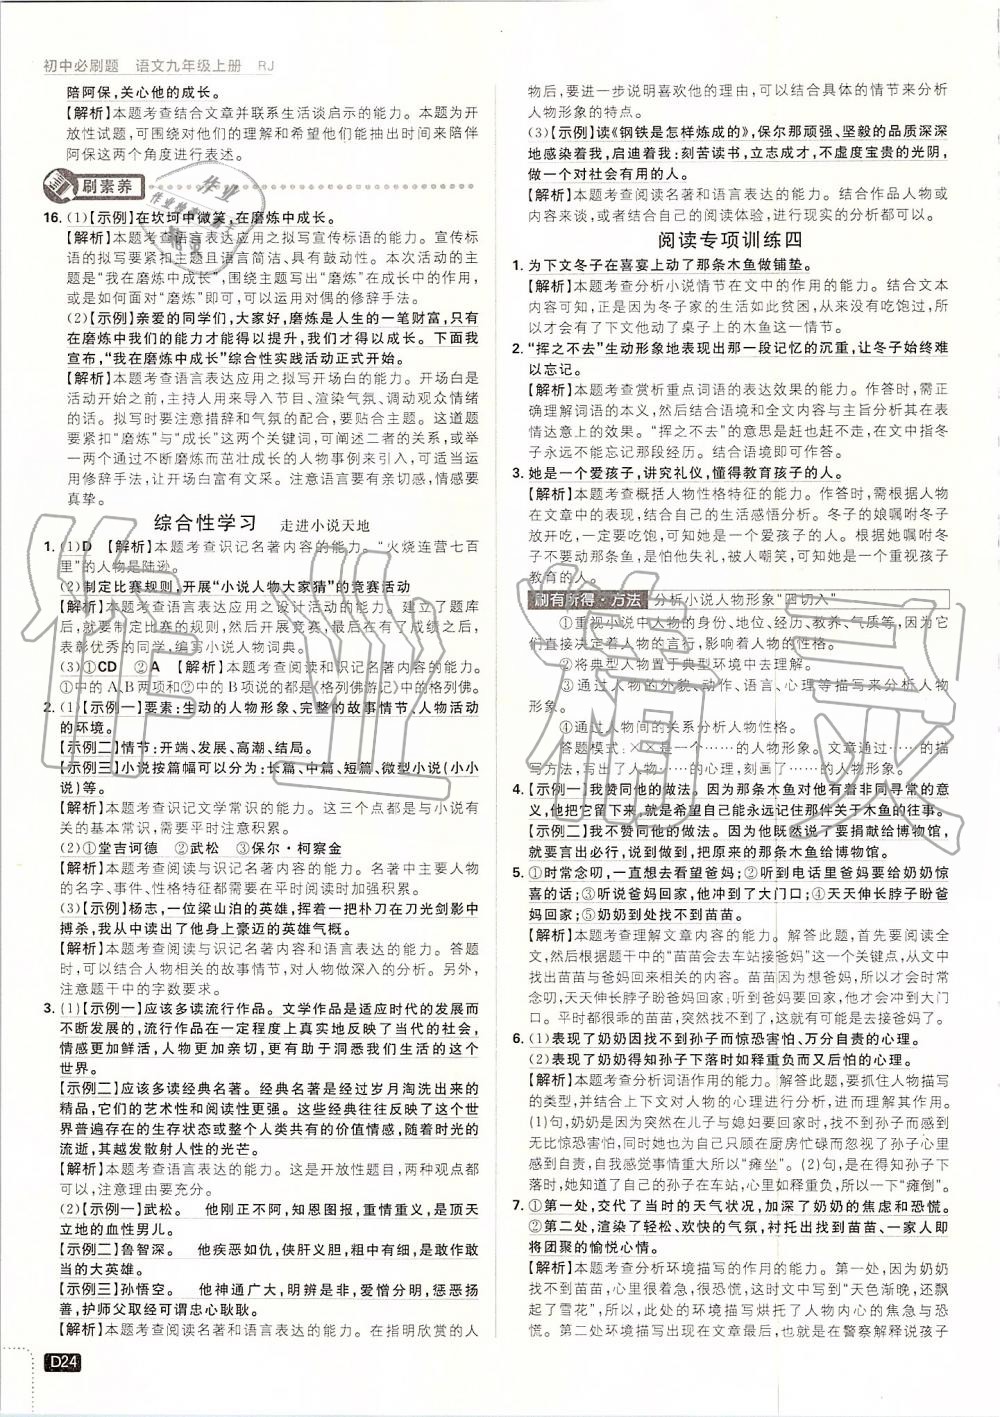 初中必刷题 语文九年级上册 RJ
陪阿保,关心他的成长。
【解析】本题考查结合文章并联系生活谈启示的能力。本题为开
放性试题,可围绕对他们的理解和希望他们能抽出时间来陪伴
阿保这两个角度进行表述。
刷素养
16. (1)【示例】在坎坷中微笑,在磨炼中成长。
【解析】本题考查语言表达应用之拟写宣传标语的能力。宣传标
语的拟写要紧扣主题且语言简洁、具有鼓动性。本次活动的主
题是“我在磨炼中成长”,围绕主题写出“磨炼”在成长中的作用,
或是如何面对“磨炼”即可,可以运用对偶的修辞手法。
(2)【示例】亲爱的同学们,大家好,磨炼是人生的一笔财富,只有
在磨炼中我们的能力才能得以提升,我们才得以成长。下面我
宣布,“我在磨炼中成长”综合性实践活动正式开始。
【解析】本题考查语言表达应用之拟写开场白的能力。开场白是
活动开始之前,主持人用来导入节目、渲染气氛、调动观众情绪
的话。拟写时要注意措辞和气氛的配合,要贴合主题。这道题
要紧扣“磨炼”与“成长”这两个关键词,可阐述二者的关系,或举
一两个通过不断磨炼而茁壮成长的人物事例来引入,可以运用
修辞手法,让开场白富有文采。注意语言要有亲切感,情感要
真挚。
综合性学习 走进小说天地
1. (1)D 【解析】本题考查识记名著内容的能力。“火烧连营七百
里”的人物是陆逊。
(2)制定比赛规则,开展“小说人物大家猜”的竞赛活动
【解析】本题考查语言表达应用之设计活动的能力。建立了题库
后,就要制定比赛的规则,然后开展竞赛,最后在有了成绩之后,
表彰优秀的同学,编写小说人物词典。
(3)①CD ②A 【解析】本题考查阅读和识记名著内容的能力。
①中的A、B两项和②中的B项说的都是《格列佛游记》中的格列佛。
2. (1)【示例一】要素:生动的人物形象、完整的故事情节、人物活动
的环境。
【示例二】情节:开端、发展、高潮、结局。
【示例三】小说按篇幅可以分为:长篇、中篇、短篇、微型小说(小小
说)等。
【解析】本题考查识记文学常识的能力。这三个点都是与小说有
关的基本常识,需要平时注意积累。
(2)①堂吉诃德 ②武松 ③保尔·柯察金
【解析】本题考查阅读与识记名著内容的能力。名著中主要人物
的名字、事件、性格特征都需要在平时阅读时加强积累。
(3)【示例】杨志,一位梁山泊的英雄,挥着一把朴刀在刀光剑影中
搏杀,我从中读出了他身上豪迈的英雄气概。
【解析】本题考查阅读与识记名著内容和语言表达的能力。答题
时,可以结合人物相关的故事情节,对人物做深入的分析。另外,
注意题干中的字数要求。
3. (1)【示例一】应该多读流行作品。文学作品是适应时代的发展而
不断发展的,流行作品在一定程度上真实地反映了当代的社会,
情感更加鲜活,人物更加亲切,更有助于洞悉我们生活的这个
世界。
【示例二】应该多读经典名著。经典名著是经过岁月淘洗出来的
精品,它们的艺术性和阅读性更强。这些经典往往反映了这个世
界普遍存在的生存状态或整个人类共有的价值情感,随着时光的
流逝,其越发散射人性的光芒。
【解析】本题考查语言表达的能力。这是开放性题目,两种观点都
可以,注意理由要充分。
(2)【示例一】武松。 他刚正不阿,知恩图报,重情重义,是顶天
立地的血性男儿。
【示例二】鲁智深。 他疾恶如仇,侠肝义胆,粗中有细,是敢作敢
当的大英雄。
【示例三】孙悟空。 他神通广大,明辨是非,爱憎分明,惩恶扬
善,护师父取经可谓忠心耿耿。
【解析】本题考查阅读名著和语言表达的能力。在指明欣赏的人
D24
物后,要进一步说明喜欢他的理由,可以结合具体的情节来分析
人物形象的特点。
(3)【示例】读《钢铁是怎样炼成的》,保尔那顽强、坚毅的品质深深
地感染着我,启迪着我:刻苦读书,立志成才,不虚度宝贵的光阴,
做一个对社会有用的人。
【解析】本题考查阅读名著和语言表达的能力。结合作品人物或
内容来谈,或者结合自己的阅读体验,进行现实的分析都可以。
阅读专项训练四
1. 为下文冬子在喜宴上动了那条木鱼做铺垫。
【解析】本题考查分析小说情节在文中的作用的能力。结合文本
内容可知,正是因为冬子家的生活如此贫困,从来没有吃饱过,所
以才会有了下文他动了桌子上的木鱼这一情节。
2. “挥之不去”生动形象地表现出那一段记忆的沉重,让冬子始终难
以忘记。
【解析】本题考查赏析重点词语的表达效果的能力。作答时,需正
确理解词语的本义,然后结合语境和全文内容与主旨分析其在表
情达意上的效果。“挥之不去”的意思是赶也赶不走,在文中指冬
子永远不能忘记那段经历。结合语境即可作答。
3. 她是一个爱孩子,讲究礼仪,懂得教育孩子的人。
【解析】本题考查概括人物性格特征的能力。作答时,需根据人物
在文中的表现,结合自己的生活感悟分析。冬子的娘嘱咐冬子放
开吃,一定要吃饱,可知她是一个爱孩子的人。根据她嘱咐冬子
不要动那条鱼,是怕他失礼,被人嘲笑,可知她是一个重视孩子
教育的人。
刷有所得·方法 分析小说人物形象“四切入”
①重视小说中人物的身份、地位、经历、教养、气质等,因为它
们直接决定着人物的言行,影响着人物的性格。
②将典型人物置于典型环境中去理解。
③通过人物的外貌、动作、语言、心理等描写来分析人物
形象。
④通过人物间的关系分析人物性格。
答题模式:××是一个……的人物形象。文章通过……的描
写方法,写出了人物……的心理,刻画了……的人物形象。
4. 【示例一】我赞同他的做法。因为那条木鱼对他有着非同寻常的意
义,他把它留下来,就是希望自己能永远记住那件关于木鱼的事。
【示例二】我不赞同他的做法。因为他既然说了要捐献给博物馆,
就要言出必行,说到做到,把原来的那条木鱼给博物馆。
5. ①时常念叨,一直想去看望爸妈;②听到电话里爸妈要给奶奶惊
喜的话;③听说爸妈回家,他冲到了大门口;④天天伸长脖子盼爸
妈回家;⑤奶奶到处找不到苗苗。
【解析】本题考查理解文章内容的能力。解答此题,首先要阅读全
文,然后根据题干中的“苗苗会去车站接爸妈”这一个关键点,从文中
找出苗苗与爸妈回来相关的内容。苗苗因为想爸妈,所以才会时常
念叨,天天伸长脖子盼爸妈回家;听到爸妈要回家,他才会冲到大门
口。平时都很乖的苗苗,突然找不到了,这就有可能是去接爸妈了。
6. (1)表现了奶奶因找不到孙子而惊恐害怕、万分自责的心理。
(2)表现了奶奶得知孙子下落时如释重负而又后怕的心理。
【解析】本题考查分析词语作用的能力。解答此题,要抓住人物描写
的类型,并结合上下文对人物的心理进行分析,进而理解其作用。
(1)句,奶奶是在突然在儿子与媳妇要回家时,找不到孙子而感到
无比惊恐害怕,同时她也为自己只顾在厨房忙碌而忽视了孙子心里
感到自责,自我感觉事情重大所以“瘫坐”。(2)句,是在得知孙子下
落时,她知道了自己的孙子在车站,心里如释重负,所以一下“瘫倒”。
7. ①第一处,交代了当时的天气状况,加深了奶奶的焦虑和恐慌。
②第二处,渲染了轻松、欢快的气氛,衬托出找到苗苗、一家人即
将团聚的愉悦心情。
【解析】本题考查分析环境描写的作用的能力。第一处,因为奶奶
找不到苗苗,心里很着急、很恐慌,这段文中写到“天色渐晚,还飘
起了雪花”,所以,此处的环境描写烘托了人物内心的焦急与恐
慌。第二处环境描写出现在文章最后,正是在警察解释说孩子
作业精灵